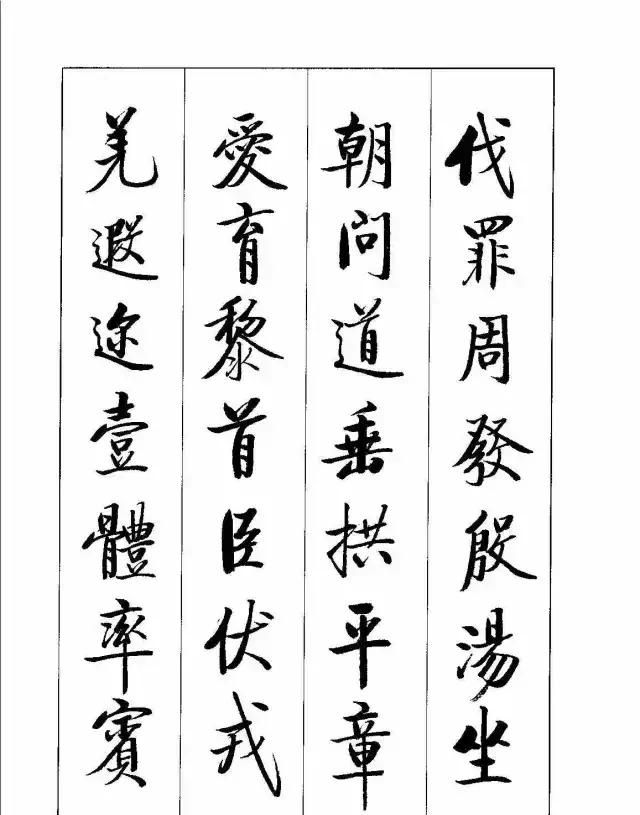 伐罪周發殷湯坐
朝問道垂拱平章
愛育黎首臣伏戎
羌遐途壹體率賓